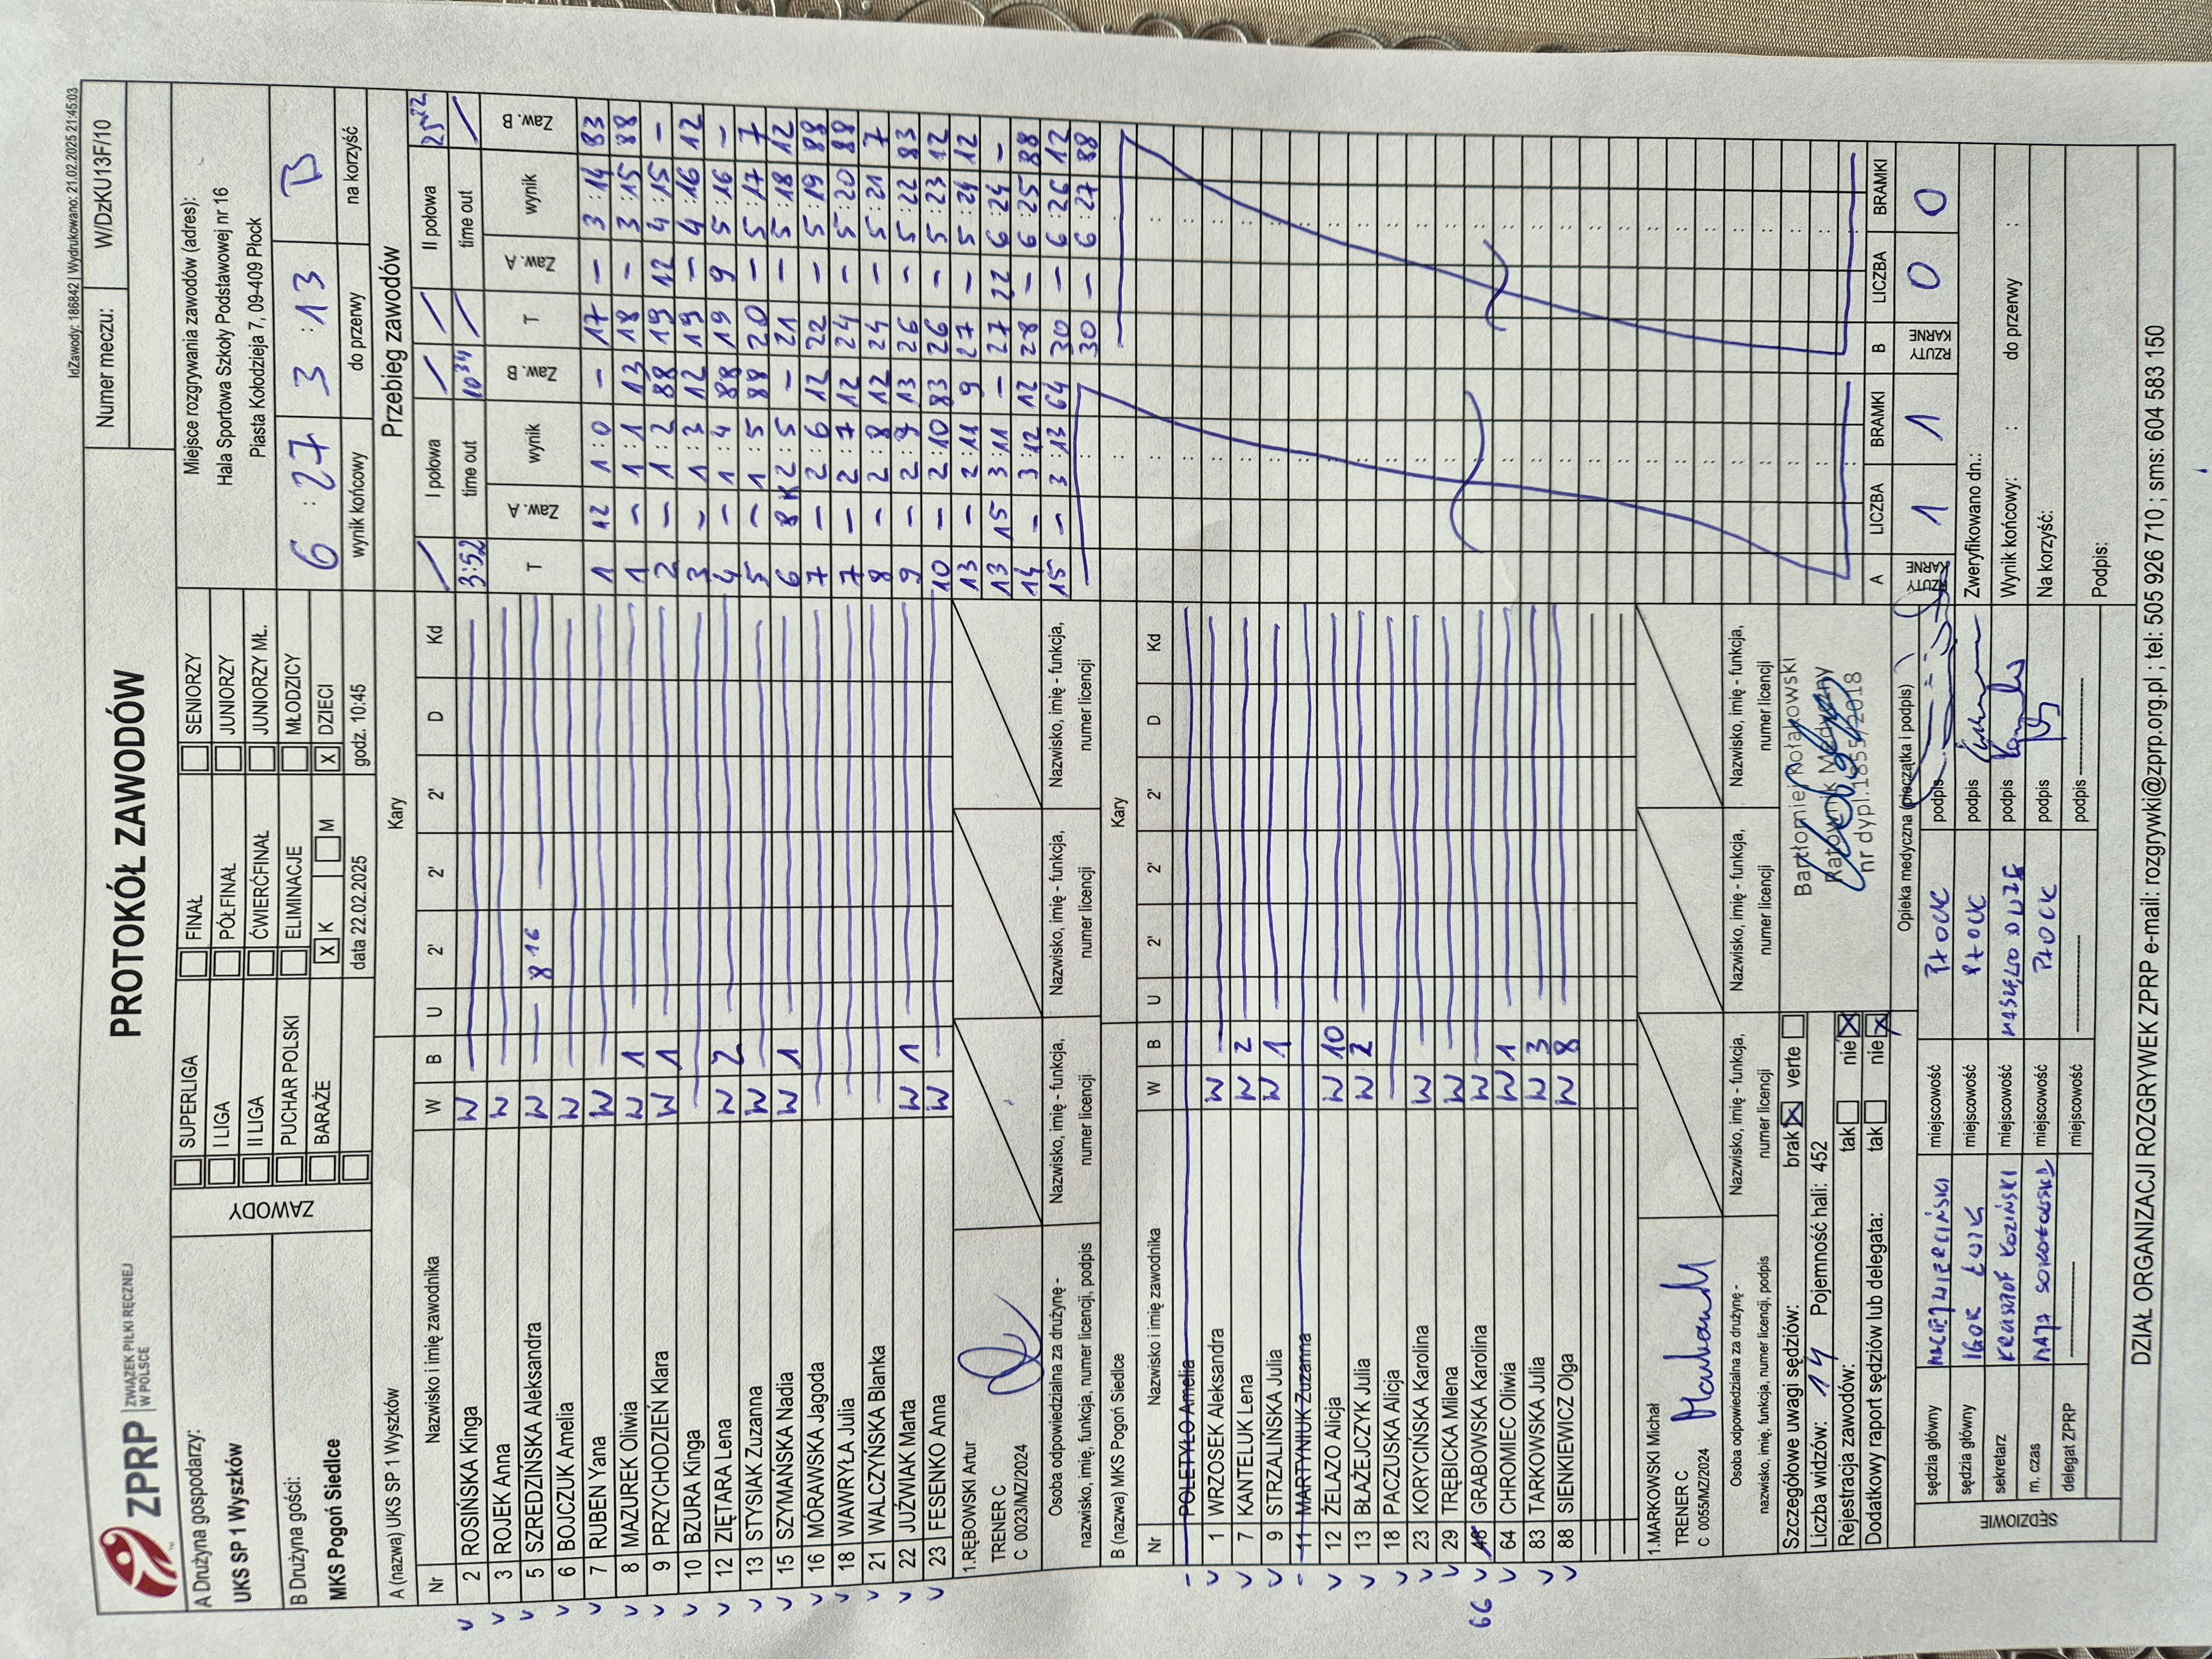 IdZawody: 186842 | Wydrukowano: 21.02.2025 21:45:03
ZPRP ZWIĄZEK PIŁKI RĘCZNEJ W POLSCE
PROTOKÓŁ ZAWODÓW
Numer meczu: W/DzKU13F/10
A Drużyna gospodarzy:
UKS SP 1 Wyszków
B Drużyna gości:
MKS Pogoń Siedlce
ZAWODY
SUPERLIGA FINAŁ SENIORZY
I LIGA PÓŁFINAŁ JUNIORZY
II LIGA ĆWIERĆFINAŁ JUNIORZY MŁ.
PUCHAR POLSKI ELIMINACJE MŁODZICY
BARAŻE X K M X DZIECI
data 22.02.2025 godz. 10:45
Miejsce rozgrywania zawodów (adres):
Hala Sportowa Szkoły Podstawowej nr 16
Piasta Kołodzieja 7, 09-409 Płock
6 : 27 3 : 13 B
wynik końcowy do przerwy na korzyść
A (nazwa) UKS SP 1 Wyszków Kary
Nr Nazwisko i imię zawodnika W B U 2' 2' 2' D Kd
2 ROSIŃSKA Kinga W
3 ROJEK Anna W
5 SZREDZIŃSKA Aleksandra W 8 16
6 BOJCZUK Amelia W
7 RUBEN Yana W
8 MAZUREK Oliwia W 1
9 PRZYCHODZIEŃ Klara W 1
10 BZURA Kinga
12 ZIĘTARA Lena W 2
13 STYSIAK Zuzanna W
15 SZYMAŃSKA Nadia W 1
16 MÓRAWSKA Jagoda
18 WAWRYŁA Julia
21 WALCZYŃSKA Blanka
22 JUŹWIAK Marta W 1
23 FESENKO Anna W
1.RĘBOWSKI Artur
TRENER C
C 0023/MZ/2024
Osoba odpowiedzialna za drużynę -
nazwisko, imię, funkcja, numer licencji, podpis
Nazwisko, imię - funkcja, numer licencji
Nazwisko, imię - funkcja, numer licencji
Nazwisko, imię - funkcja, numer licencji
B (nazwa) MKS Pogoń Siedlce Kary
Nr Nazwisko i imię zawodnika W B U 2' 2' 2' D Kd
POLETYŁO Amelia
1 WRZOSEK Aleksandra W
7 KANTELUK Lena W 2
9 STRZALIŃSKA Julia W 1
11 MARTYNIUK Zuzanna
12 ŻELAZO Alicja W 10
13 BŁAŻEJCZYK Julia W 2
18 PACZUSKA Alicja
23 KORYCIŃSKA Karolina W
29 TRĘBICKA Milena W
66 GRABOWSKA Karolina W
64 CHROMIEC Oliwia W 1
83 TARKOWSKA Julia W 3
88 SIENKIEWICZ Olga W 8
1.MARKOWSKI Michał
TRENER C
C 0055/MZ/2024
Osoba odpowiedzialna za drużynę -
nazwisko, imię, funkcja, numer licencji, podpis
Nazwisko, imię - funkcja, numer licencji
Nazwisko, imię - funkcja, numer licencji
Nazwisko, imię - funkcja, numer licencji
Szczegółowe uwagi sędziów: brak X verte
Liczba widzów: 14 Pojemność hali: 452
Rejestracja zawodów: tak nie X
Dodatkowy raport sędziów lub delegata: tak nie X
Bartłomiej Kołakowski
Ratownik Medyczny
nr dypl.1855/2018
Opieka medyczna (pieczątka i podpis)
SĘDZIOWIE
sędzia główny miejscowość PŁOCK podpis
sędzia główny IGOR miejscowość PŁOCK podpis
sekretarz KRZYSZTOF KOZIŃSKI miejscowość podpis
m. czas MAJA miejscowość PŁOCK podpis
delegat ZPRP miejscowość podpis
Przebieg zawodów
I połowa II połowa
3:52 time out 10 34 time out 25 22
T Zaw. A wynik Zaw. B T Zaw. A wynik Zaw. B
1 12 1 : 0 – 17 – 3 : 14 83
1 – 1 : 1 13 18 – 3 : 15 88
2 – 1 : 2 88 19 12 4 : 15 –
3 – 1 : 3 12 19 – 4 : 16 12
4 – 1 : 4 88 19 9 5 : 16 –
5 – 1 : 5 88 20 – 5 : 17 7
6 8K 2 : 5 – 21 – 5 : 18 12
7 – 2 : 6 12 22 – 5 : 19 88
7 – 2 : 7 12 24 – 5 : 20 88
8 – 2 : 8 12 24 – 5 : 21 7
9 – 2 : 9 13 26 – 5 : 22 83
10 – 2 : 10 83 26 – 5 : 23 12
13 – 2 : 11 9 27 – 5 : 24 12
13 15 3 : 11 – 27 22 6 : 24 –
14 – 3 : 12 12 28 – 6 : 25 88
15 – 3 : 13 64 30 – 6 : 26 12
30 – 6 : 27 88
A RZUTY KARNE LICZBA BRAMKI B RZUTY KARNE LICZBA BRAMKI
1 1 0 0
Zweryfikowano dn.:
Wynik końcowy: : do przerwy :
Na korzyść:
Podpis:
DZIAŁ ORGANIZACJI ROZGRYWEK ZPRP e-mail: rozgrywki@zprp.org.pl ; tel: 505 926 710 ; sms: 604 583 150